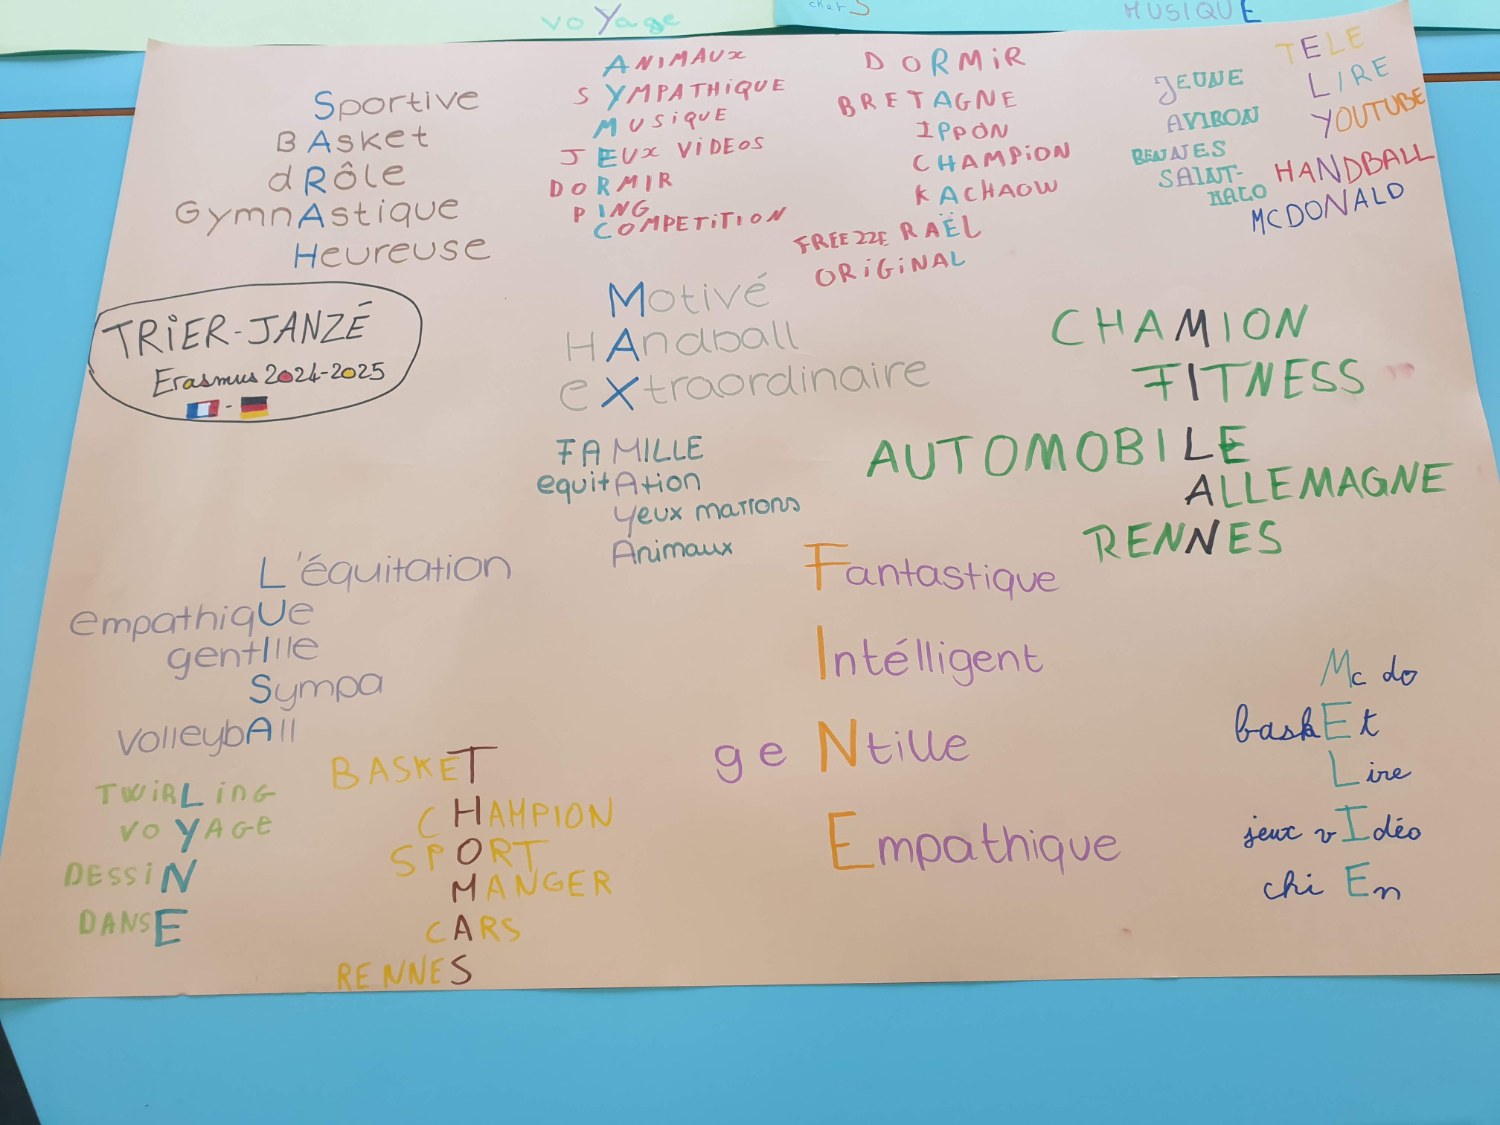 voYage
charS
MUSIQUE
Sportive
BAsket
dRôle
GymnAstique
Heureuse
ANIMAUX
SYMPATHIQUE
MUSIQUE
JEUX VIDEOS
DORMIR
PING
COMPETITION
DORMIR
BRETAGNE
IPPON
CHAMPION
KACHAOW
FREEZZE RAËL
ORIGINAL
JEUNE
AVIRON
RENNES
SAINT-
MALO
TELE
LIRE
YOUTUBE
HANDBALL
MCDONALD
TRIER-JANZÉ
Erasmus 2024-2025
Motivé
HAndball
eXtraordinaire
CHAMION
FITNESS
AUTOMOBILE
ALLEMAGNE
RENNES
FAMILLE
equitAtion
Yeux marrons
Animaux
L'équitation
empathiqUe
gentIlle
Sympa
VolleybAll
Fantastique
Intélligent
geNtille
Empathique
TWIRLING
VOYAGe
DESSIN
DANSE
BASKET
CHAMPION
SPORT
MANGER
CARS
RENNES
Mc do
baskEt
Lire
jeux vIdéo
chiEn